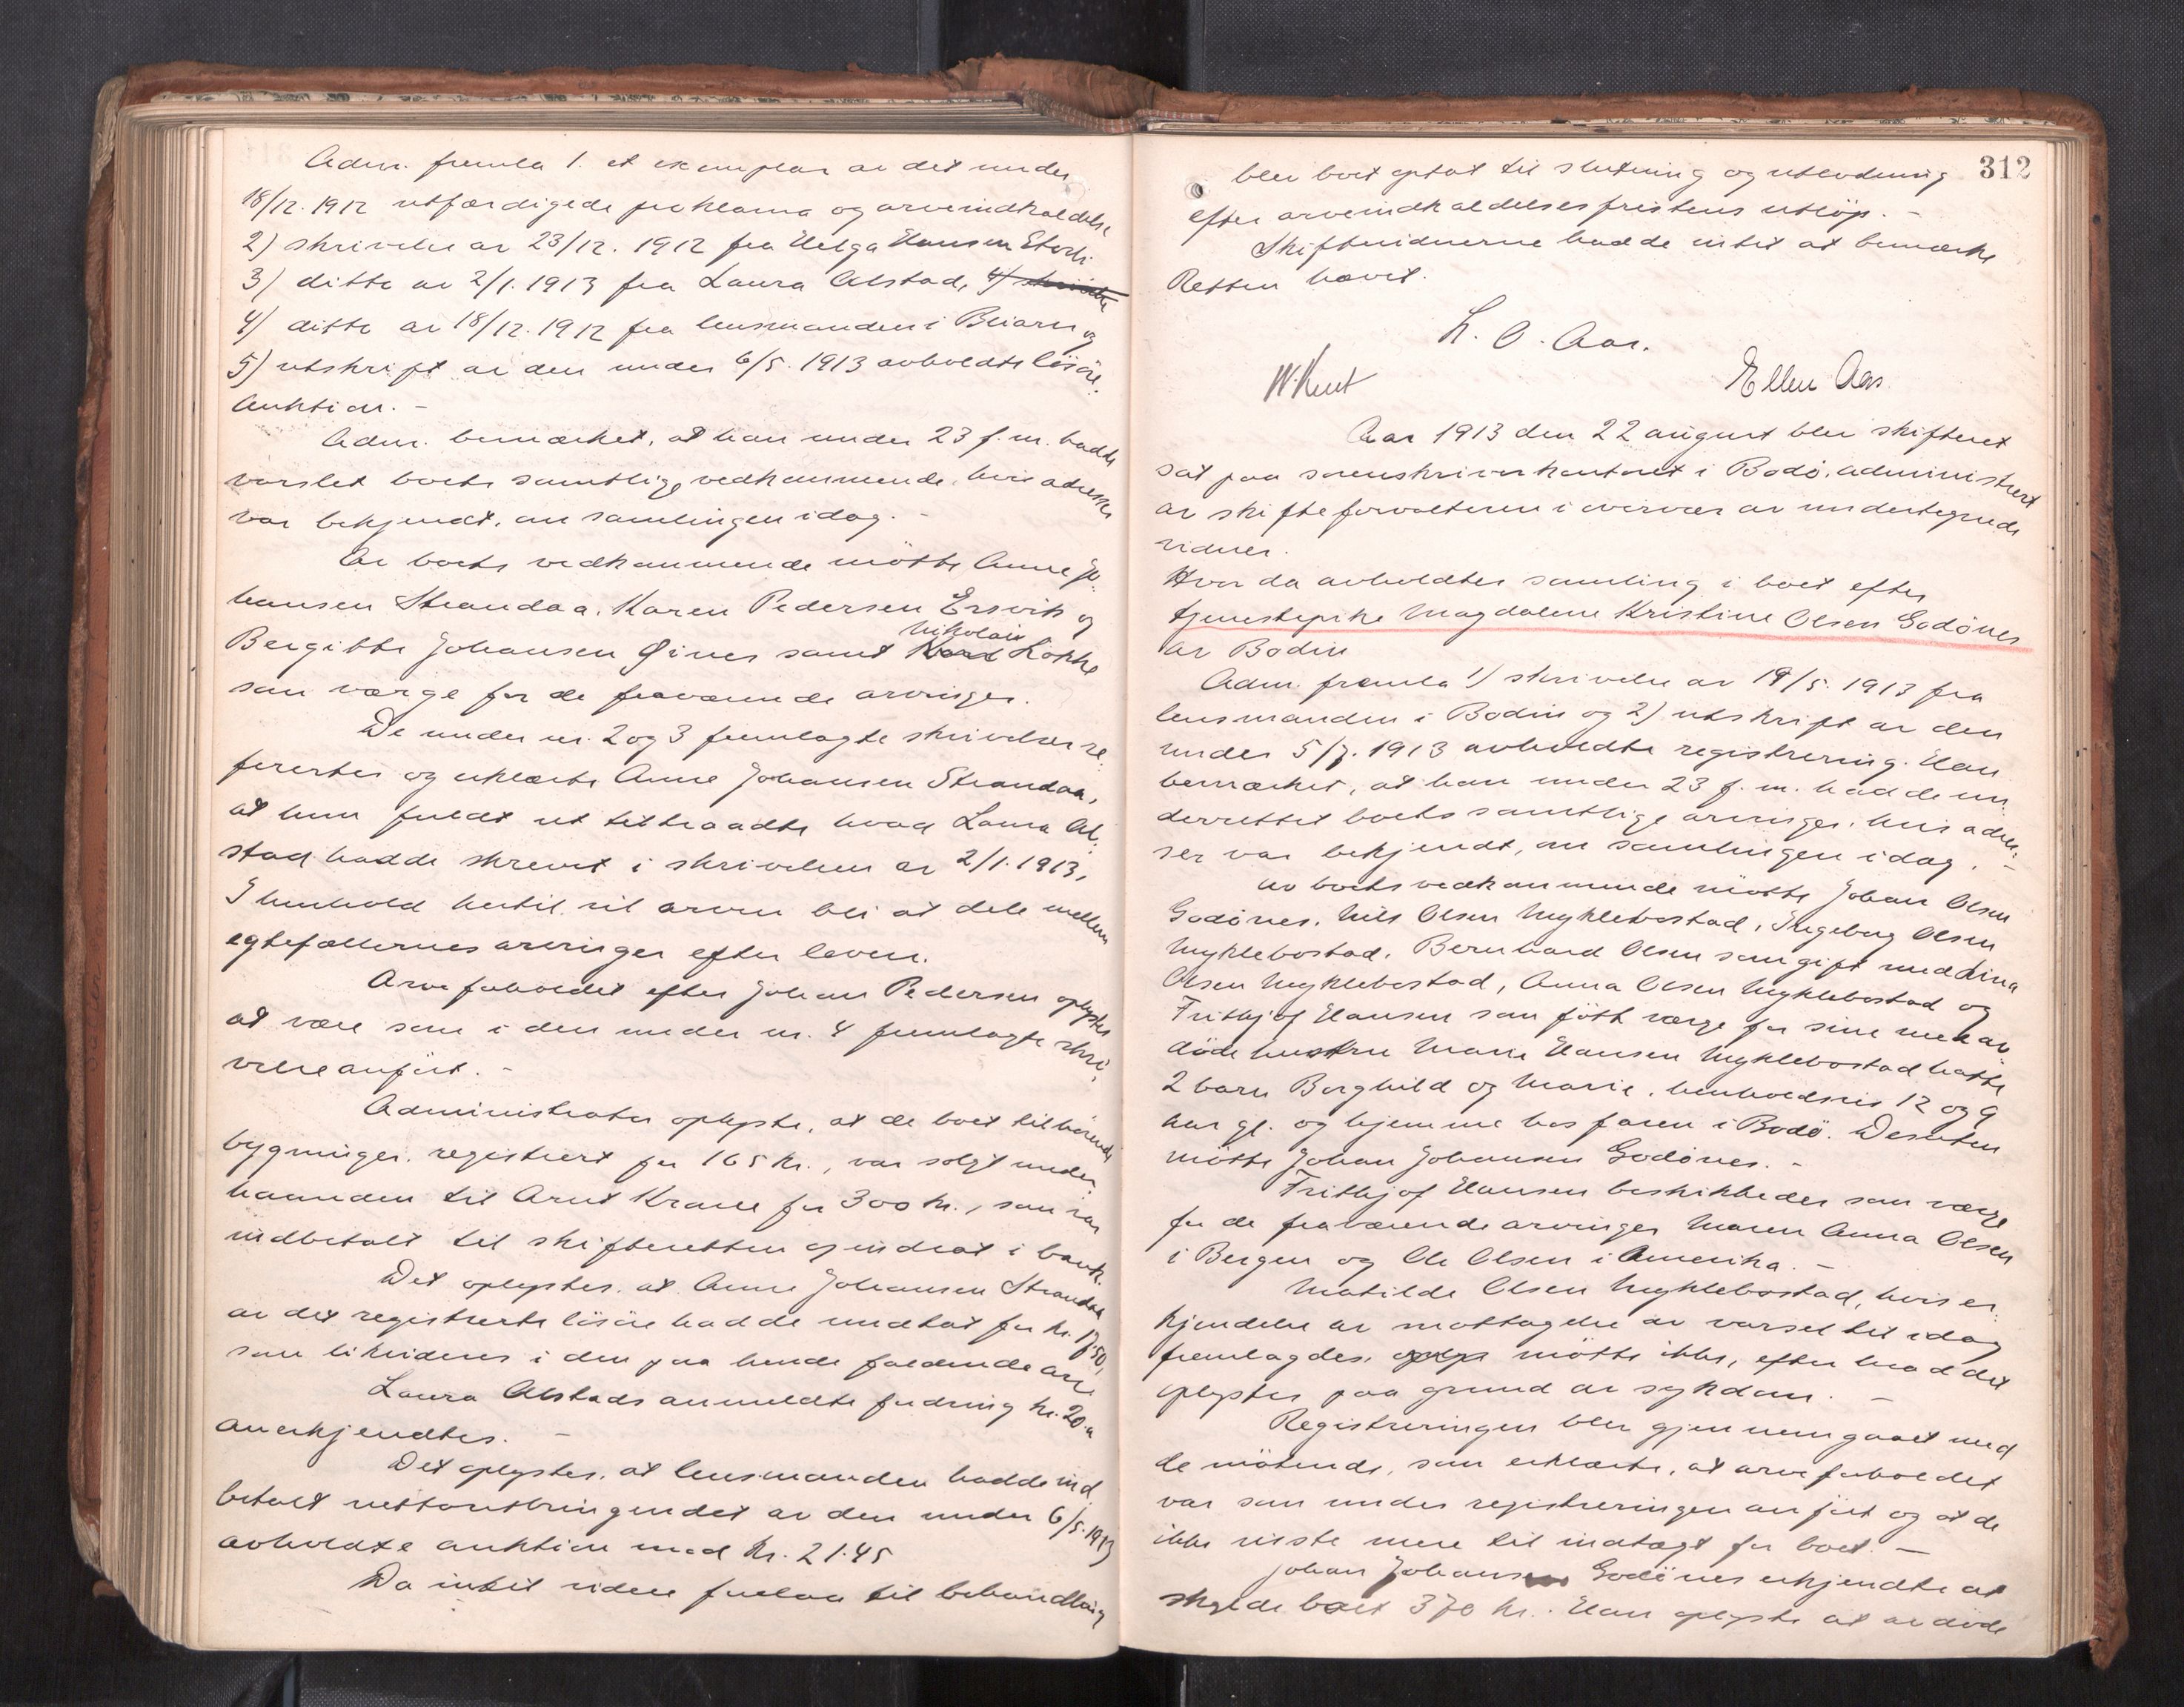 Adm. fremla 1. et exemplar av det under
18/12. 1912 utfærdigede proklama og arveindkaldelse
2) skrivelse av 23/12. 1912 fra Helga Hansen
3) ditto av 2/1. 1913 fra Laura Alstad,
4) ditto av 18/12. 1912 fra lensmanden i Beiarn og
5) utskrift av den under 6/5. 1913 avholdte løsøre-
auktion. -
Adm. bemærket, at han under 23 f. m. hadde
varslet boets samtlige vedkommende, hvis adresser
var bekjendt, om samlingen idag. -
Av boets vedkommende møtte Anne Jo-
hansen Strandaa, Karen Pedersen Ersvik og
Nikolai
Bergitte Johansen samt Løkke
som værge for de fraværende arvinger.
De under nr. 2 og 3 fremlagte skrivelser re-
ferertes og erklærte Anne Johansen Strandaa,
at hun fuldt ut tiltraadte hvad Laura Al-
stad hadde skrevet i skrivelsen av 2/1. 1913,
I henhold hertil vil arven bli at dele mellem
egtefællernes arvinger efter loven.
Arveforholdet efter Johan Pedersen oplystes
at være som i den under nr. 4 fremlagte skri-
velse anført. -
Administrator oplyste, at de boet tilhørende
bygninger, registrert for 165 kr., var solgt under-
haanden til Arnt Krane for 300 kr., som var
indbetalt til skifteretten og indsat i bank.
Det oplystes, at Anne Johansen Strandaa
av det registrerte løsøre hadde undtat for kr. 17.50,
som likvideres i den paa hende faldende arv
Laura Alstads anmeldte fordring kr. 20.-
anerkjendtes. -
Det oplystes, at lensmanden hadde ind-
betalt nettoutbringendet av den under 6/5. 1913
avholdte auktion med kr. 21.45
Da intet videre forelaa til behandling
312
blev boet optat til slutning og utlodning
efter arveindkaldelsesfristens utløp. -
Skiftevidnerne hadde intet at bemærke
Retten hævet.
L. O. Aas.
Ellen Aas
Aar 1913 den 22 august blev skifteret
sat paa sorenskriverkontoret i Bodø, administrert
av skifteforvalteren i overvær av undertegnede
vidner.
Hvor da avholdtes samling i boet efter
tjenestepike Magdalene Kristine Olsen Godønes
av Bodin
Adm. fremla 1) skrivelse av 19/5. 1913 fra
lensmanden i Bodin og 2) utskrift av den
under 5/7. 1913 avholdte registrering. Han
bemærket, at han under 23 f. m. hadde un-
derrettet boets samtlige arvinger, hvis adres-
ser var bekjendt, om samlingen idag. -
Av boets vedkommende møtte Johan Olsen
Godønes, Nils Olsen Myklebostad, Ingeborg Olsen
Myklebostad, Bernhard Olsen som gift med Lina
Olsen Myklebostad, Anna Olsen Myklebostad og
Fritjof Hansen som født værge for sine med av-
døde hustru Marie Hansen Myklebostad hatte
2 barn Borghild og Marie, henholdsvis 12 og 9
aar gl. og hjemme hos faren i Bodø. Desuten
møtte Johan Johansen Godønes. -
Fritjof Hansen beskikkedes som værge
for de fraværende arvinger Maren Anna Olsen
i Bergen og Ole Olsen i Amerika. -
Matilde Olsen Myklebostad, hvis er-
kjendelse av mottagelse av varsel til idag
fremlagdes, møtte ikke, efter hvad det
oplystes paa grund av sykdom. -
Registreringen blev gjennemgaaet med
de møtende, som erklærte, at arveforholdet
var som under registreringen anført og at de
ikke visste mere til indtægt for boet. -
Johan Johansen Godønes erkjendte at
skylde boet 370 kr. Han oplyste at avdøde